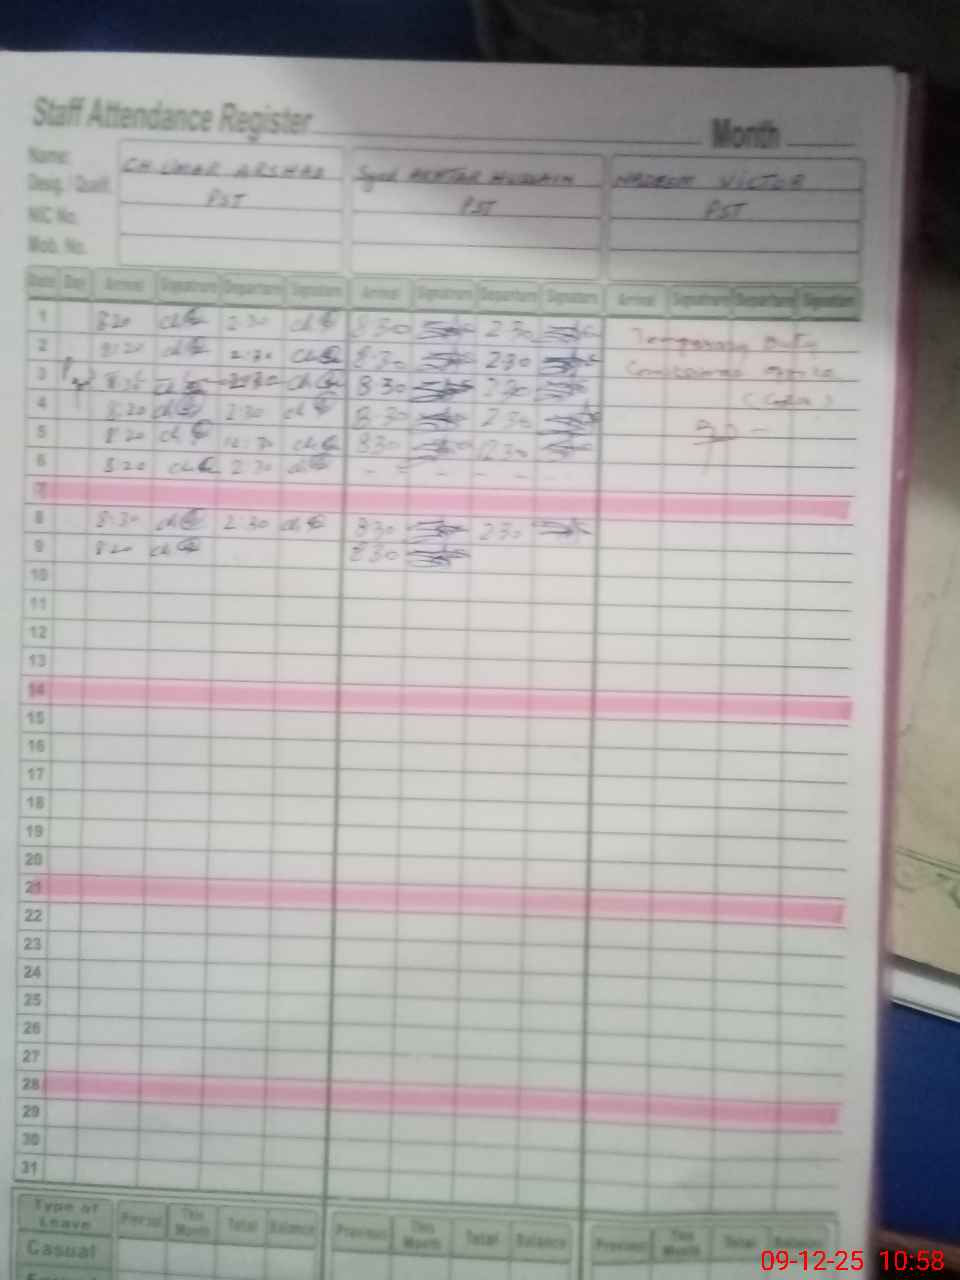 Staff Attendance Register Month
Name: CH. UMAR ARSHAD Syed AKHTAR HUSSAIN NADEEM VICTOR
Desig. / Qualif. PST PST PST
NIC No.
Mob. No.
Date Day Arrival Signature Departure Signature Arrival Signature Departure Signature Arrival Signature Departure Signature
1 8:20 2:30 8:30 2:30 Temporary Duty
2 8:20 2:30 8:30 2:30
3 8:30 2:30
4 8:20 2:30 8:30 2:30
5 8:20 12:30 8:30 12:30
6 8:20 2:30 - - - -
7
8 8:30 2:30 8:30 2:30
9 8:20 8:30
10
11
12
13
14
15
16
17
18
19
20
21
22
23
24
25
26
27
28
29
30
31
Type of Leave This Month Total Balance Previous This Month Total Balance Previous This Month Total Balance
Casual
09-12-25 10:58